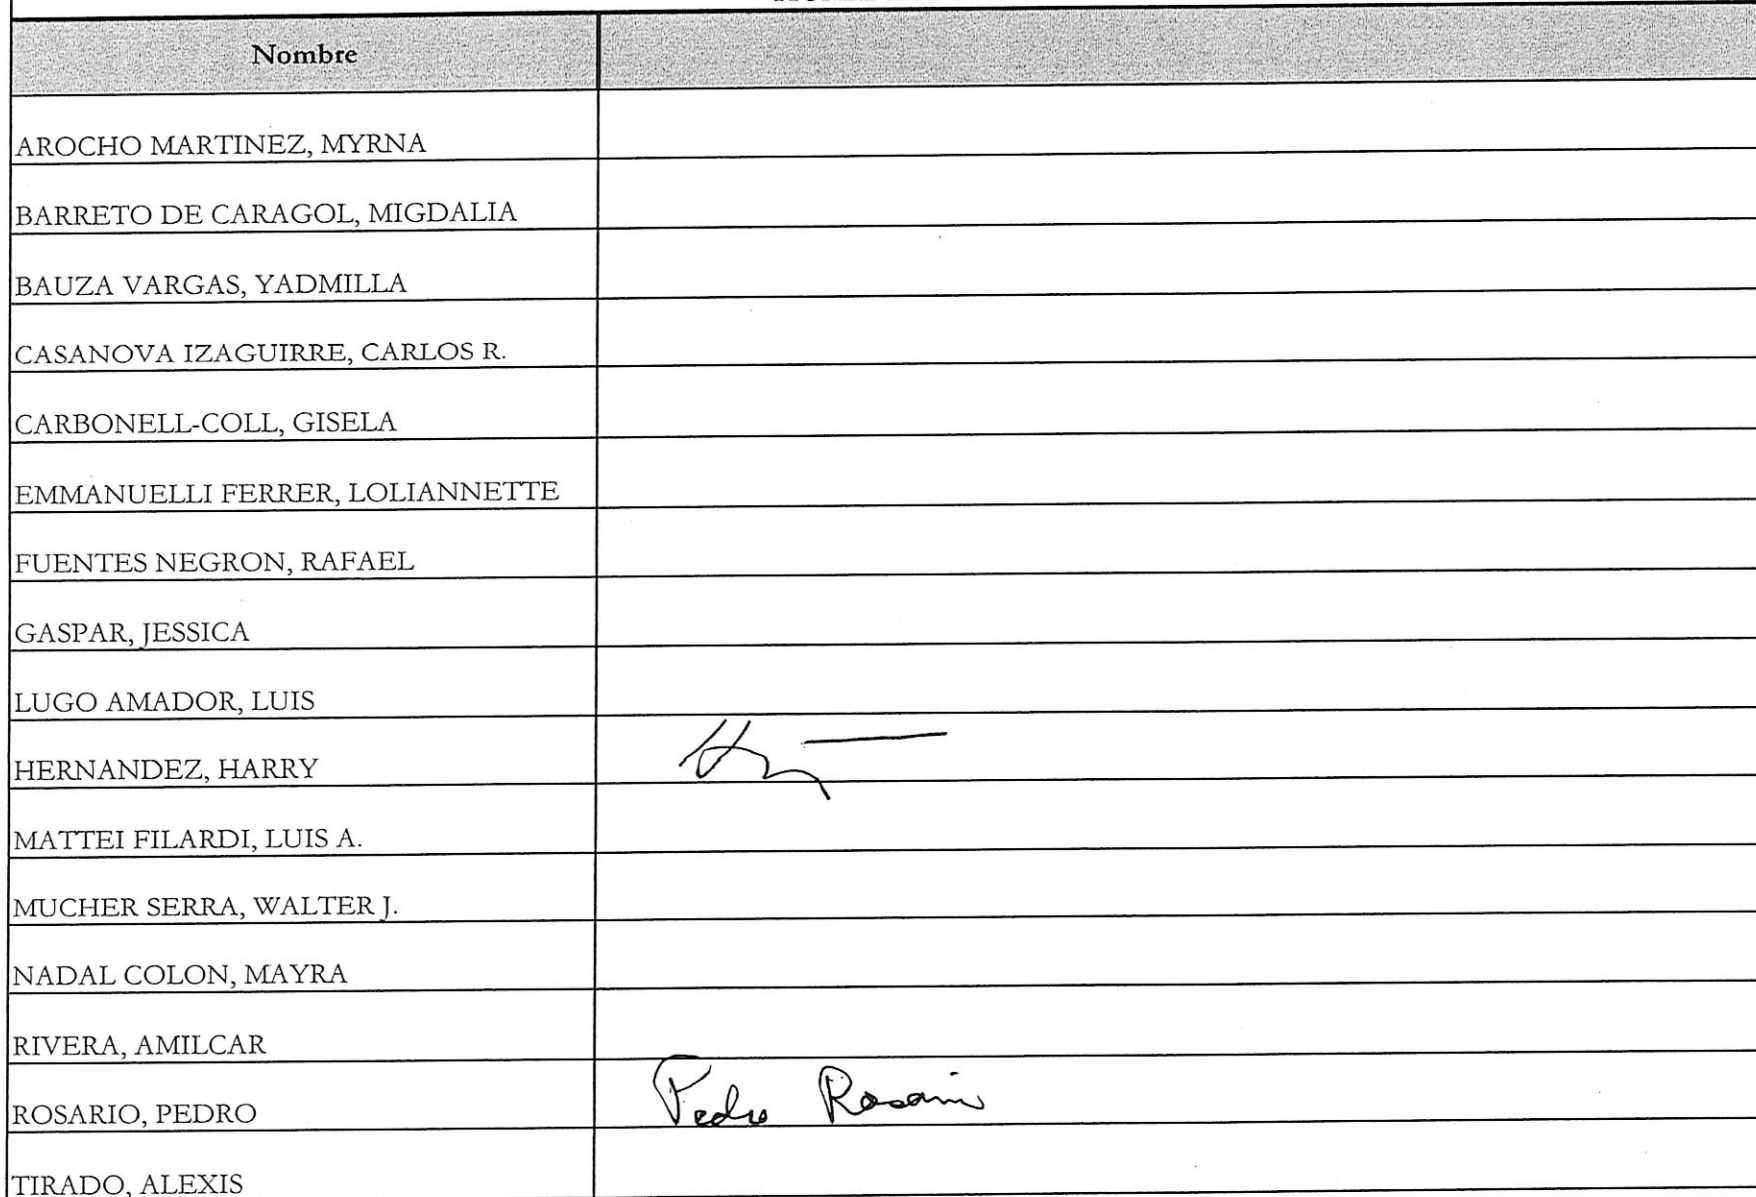 Nombre
AROCHO MARTINEZ, MYRNA
BARRETO DE CARAGOL, MIGDALIA
BAUZA VARGAS, YADMILLA
CASANOVA IZAGUIRRE, CARLOS R.
CARBONELL-COLL, GISELA
EMMANUELLI FERRER, LOLIANNETTE
FUENTES NEGRON, RAFAEL
GASPAR, JESSICA
LUGO AMADOR, LUIS
HERNANDEZ, HARRY
MATTEI FILARDI, LUIS A.
MUCHER SERRA, WALTER J.
NADAL COLON, MAYRA
RIVERA, AMILCAR
ROSARIO, PEDRO Pedro Rosario
TIRADO, ALEXIS